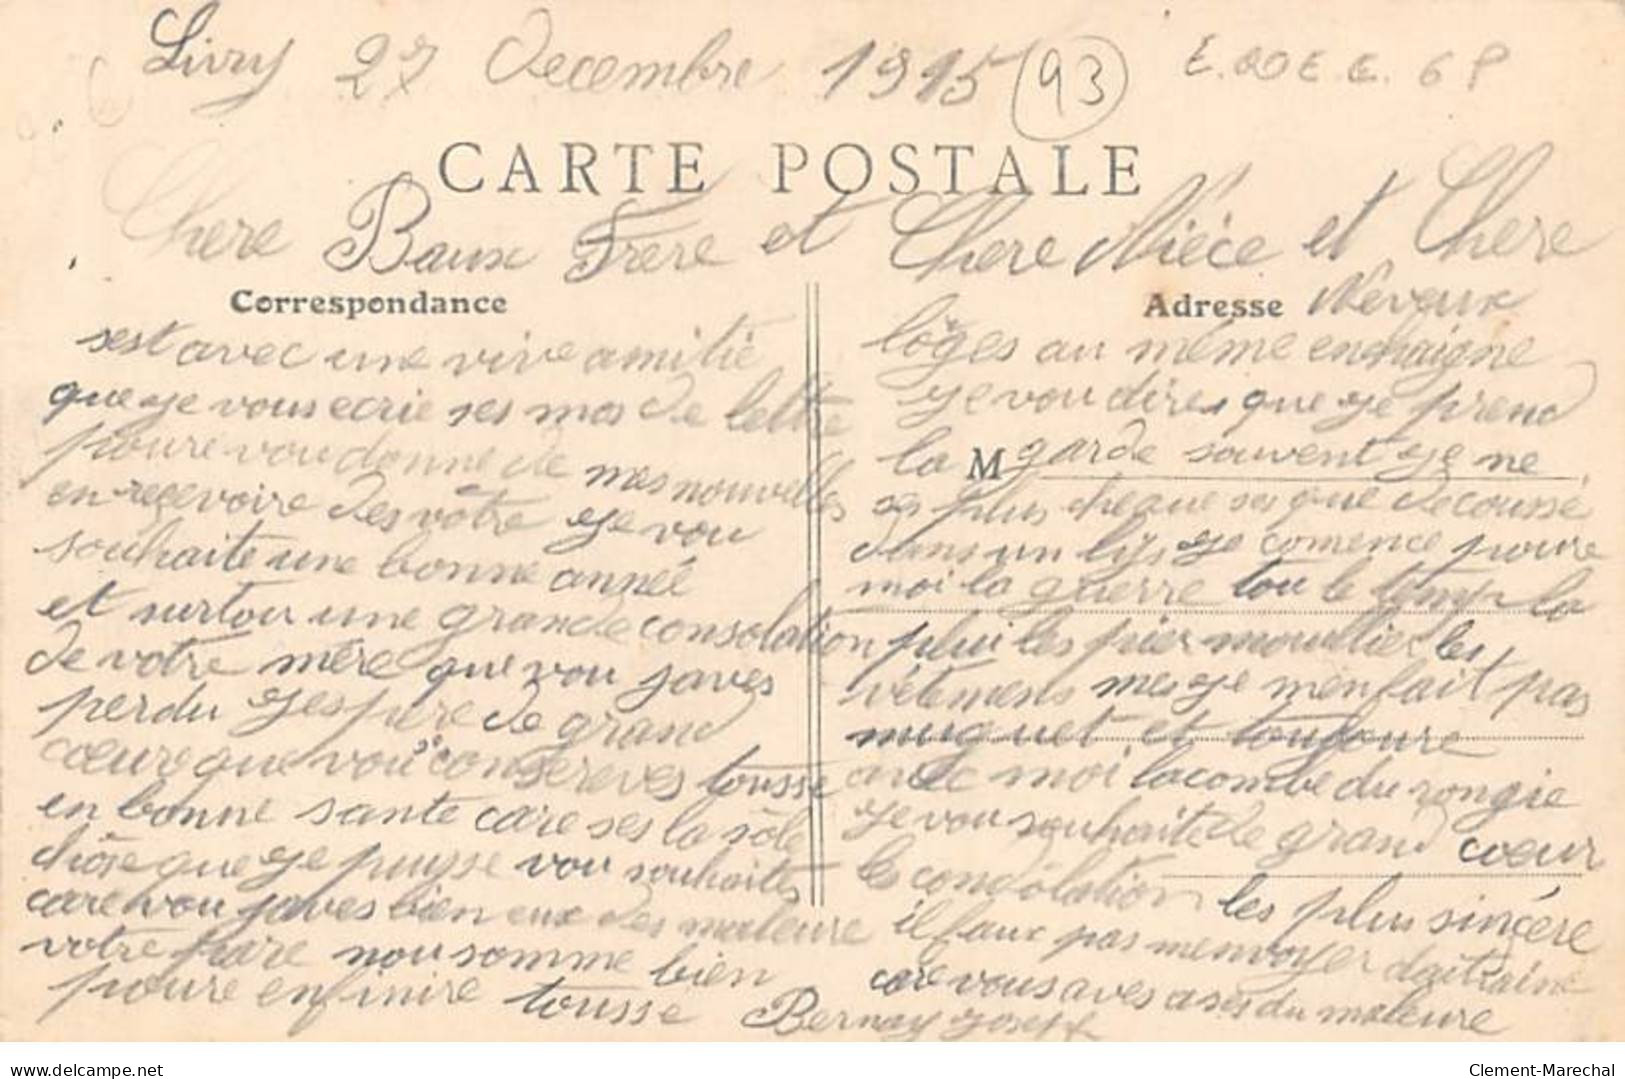 Livry 27 Decembre 1915 93 6 P
CARTE POSTALE
Chere Baux Frere et Chere Niéce et Chere
Neveux
Correspondance
sest avec une vive amitié
que ye vous ecrie ses mos de lettre
poure vou donne de mes nouvelles
en reçevoire des vôtre ye vou
souhaite une bonne année
et surtou une grande consolation
de votre mére que vou javes
perdu yespere de grand
cœure que vou consereves tousse
en bonne sante care ses la sôle
chôse que ye puyse vou souhaites
care vou javes bien eux des maleure
votre pare nou somme bien
poure enfinire tousse
Adresse
lôges au même enchaigne
ye vou dires que ye prend
la garde souvent ye ne
M
ses plus cheque ses que decoussé
dans un lijs ye comence poure
moi la guerre tou le temp la
plui les pier mouller les
vétemens mes ye men fait pas
muguet et toujoure
avec moi lacombe du rongie
ye vou souhaite de grand cœur
les consôlation les plus sincére
il faux pas menvoyer daitraine
care vous aves ases du maleure
Bernay Joseph
delcampe.net
Clement-Marechal